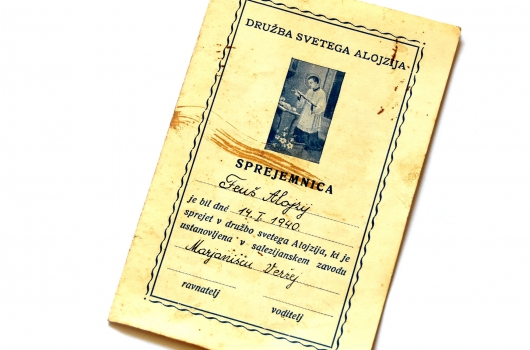 DRUŽBA SVETEGA ALOJZIJA
SPREJEMNICA
Feuš Alojzij
je bil dné 14. I. 1940.
sprejet v družbo svetega Alojzija, ki je
ustanovljena v salezijanskem zavodu
Marjanišču Veržej
ravnatelj
voditelj